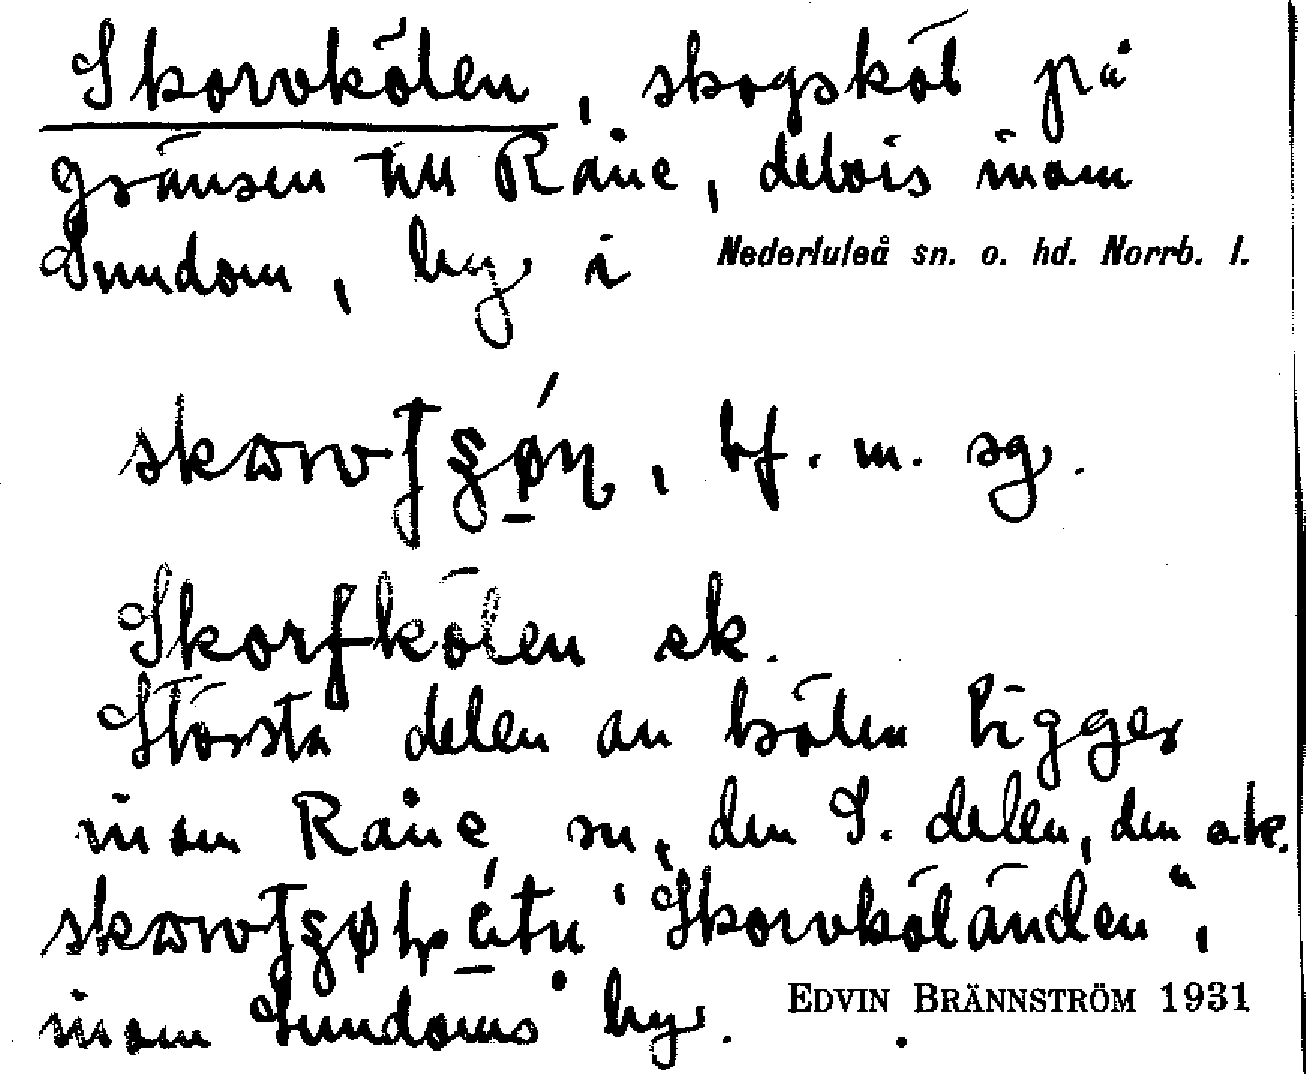 Skorvkölen, skogsköl på
gränsen till Råne, delvis inom
Sundom, by i Nederluleå sn. o. hd. Norrb. l.
bf. m. sg.
Skorfkölen ek.
Största delen av kölen ligger
inom Råne sn, den S. delen, den s.k.
"Skorvköländen",
inom Sundoms by.
EDVIN BRÄNNSTRÖM 1931